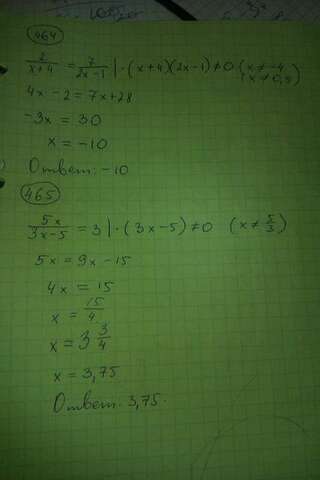 464
2/(x+4) = 7/(2x-1) | · (x+4)(2x-1) ≠ 0 (x ≠ -4, x ≠ 0,5)
4x - 2 = 7x + 28
-3x = 30
x = -10
Ответ: -10
465
5x/(3x-5) = 3 | · (3x-5) ≠ 0 (x ≠ 5/3)
5x = 9x - 15
4x = 15
x = 15/4
x = 3 3/4
x = 3,75
Ответ: 3,75.